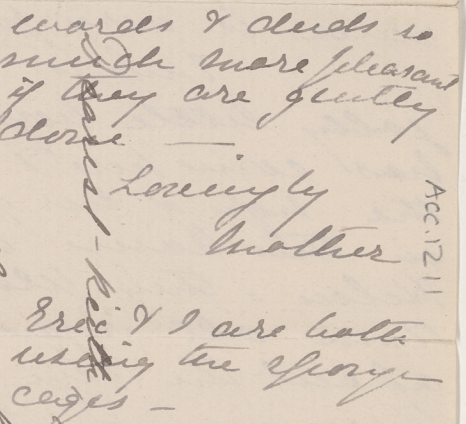 words & deeds so
much more pleasant
if they are gently
done —
Lovingly
Mother
Eric & I are both
using the sponge
cages —
Acc. 1211